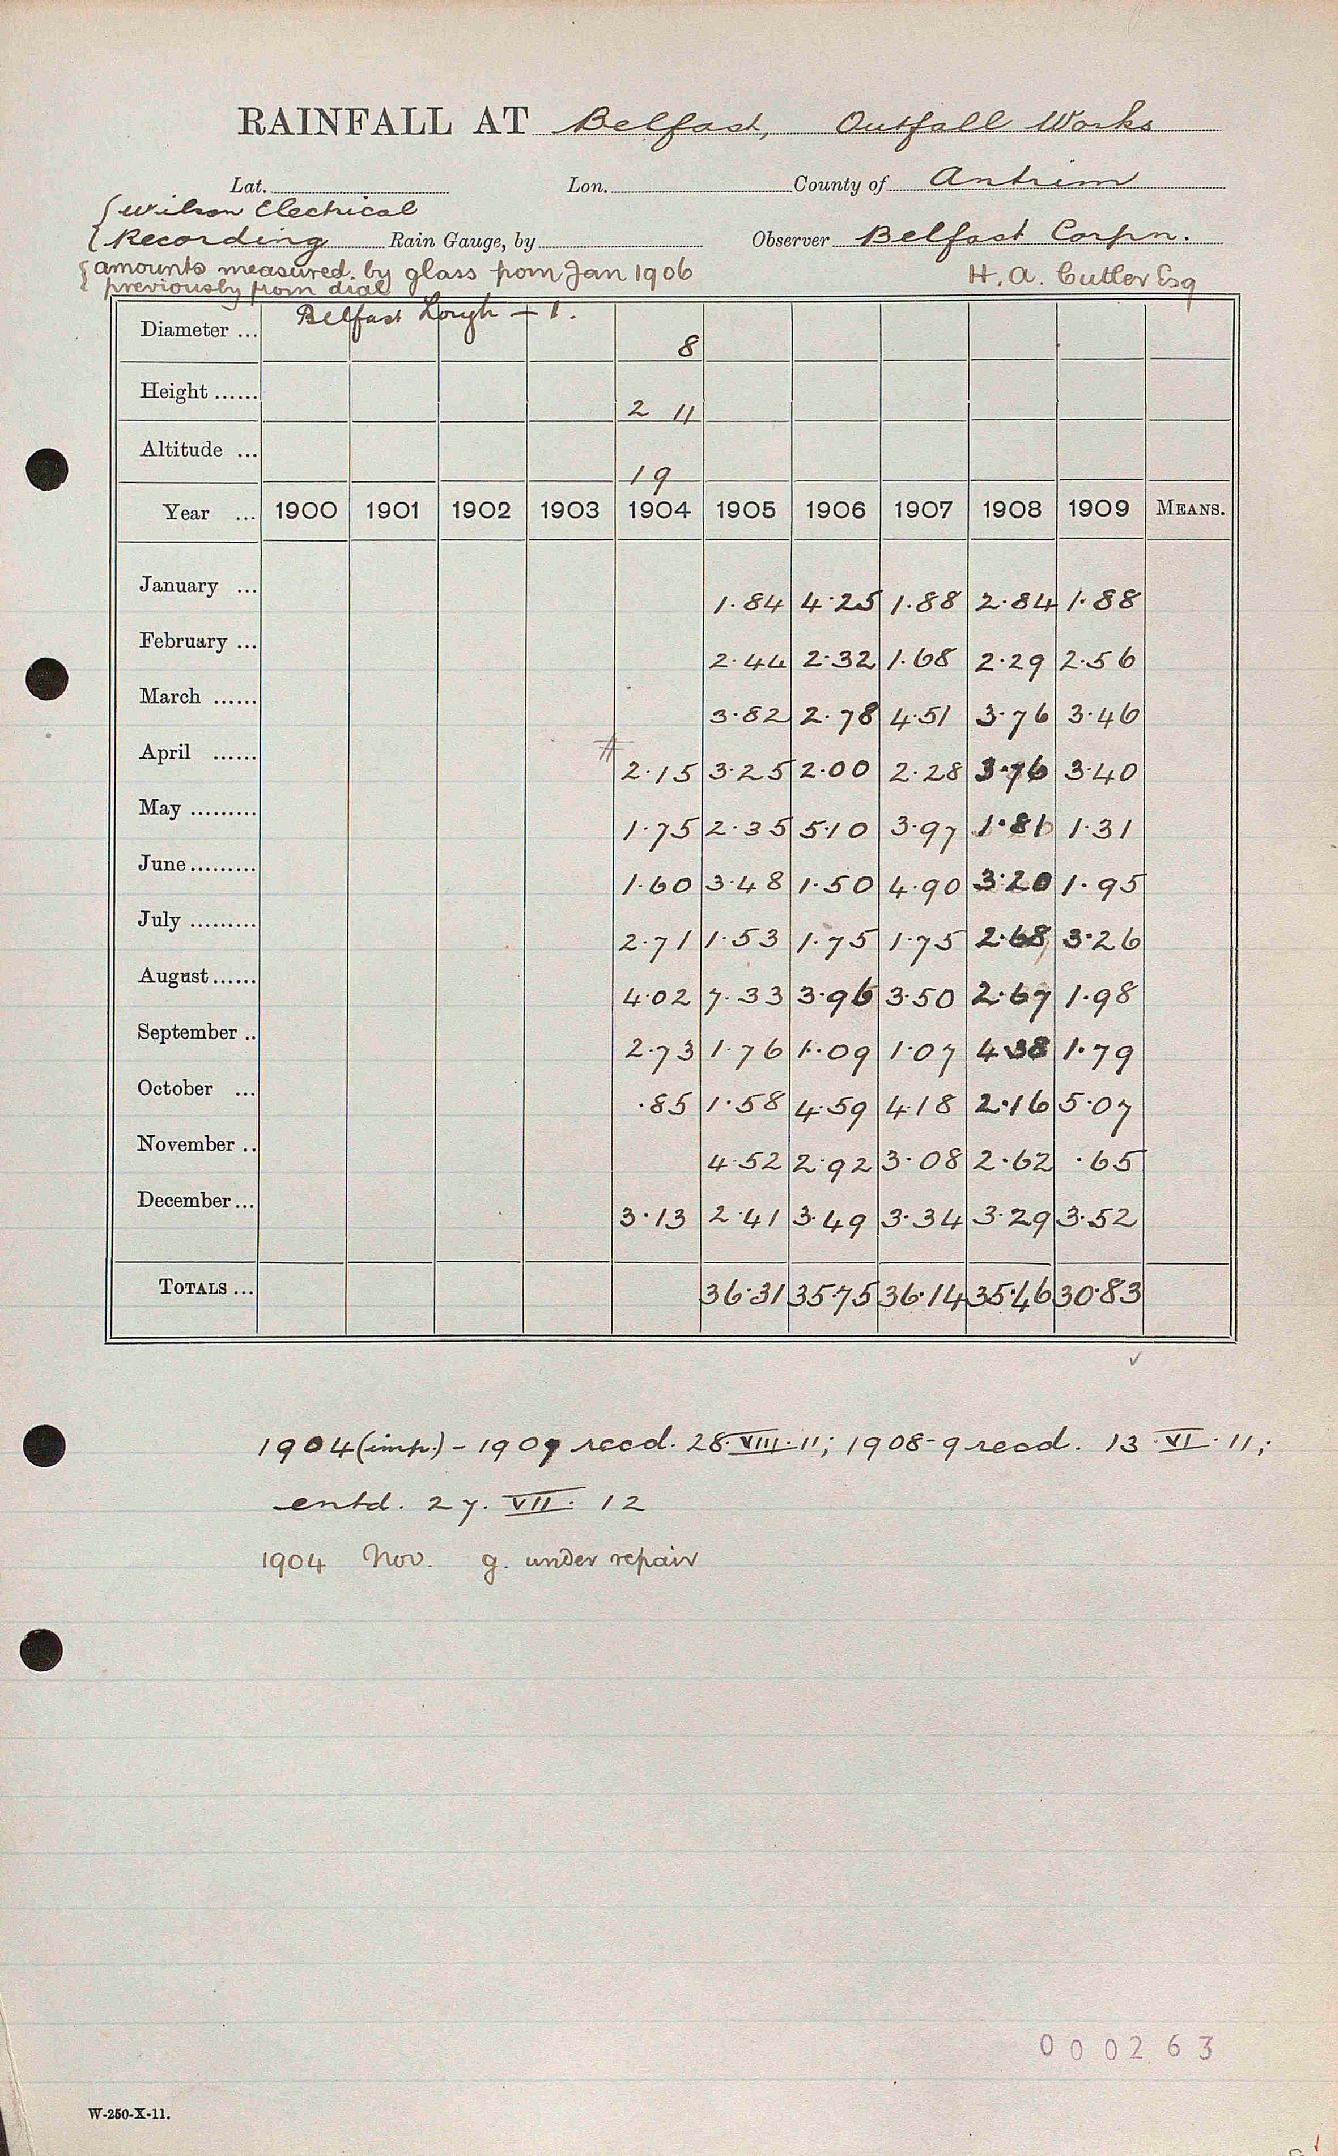 RAINFALL AT Belfast, Outfall Works
Lat. Lon. County of Antrim
{ Wilson Electrical
{ Recording Rain Gauge, by Observer Belfast Corpn.
{ amounts measured by glass from Jan 1906 H. A. Cutler Esq
{ previously from dial
Diameter ... Belfast Lough — 1. 8
Height ...... 2 11
Altitude ... 19
Year ... 1900 1901 1902 1903 1904 1905 1906 1907 1908 1909 MEANS.
January ... 1.84 4.25 1.88 2.84 1.88
February ... 2.44 2.32 1.68 2.29 2.56
March ...... 3.82 2.78 4.51 3.76 3.46
April ...... # 2.15 3.25 2.00 2.28 3.76 3.40
May ......... 1.75 2.35 5.10 3.97 1.81 1.31
June ......... 1.60 3.48 1.50 4.90 3.20 1.95
July ......... 2.71 1.53 1.75 1.75 2.68 3.26
August ...... 4.02 7.33 3.96 3.50 2.67 1.98
September .. 2.73 1.76 1.09 1.07 4.38 1.79
October ... .85 1.58 4.59 4.18 2.16 5.07
November .. 4.52 2.92 3.08 2.62 .65
December ... 3.13 2.41 3.49 3.34 3.29 3.52
TOTALS ... 36.31 35.75 36.14 35.46 30.83
1904 (imp.) - 1907 recd. 28.VIII.11; 1908-9 recd. 13.VI.11;
entd. 27.VII.12
1904 Nov. g. under repair
000263
W-250-X-11.